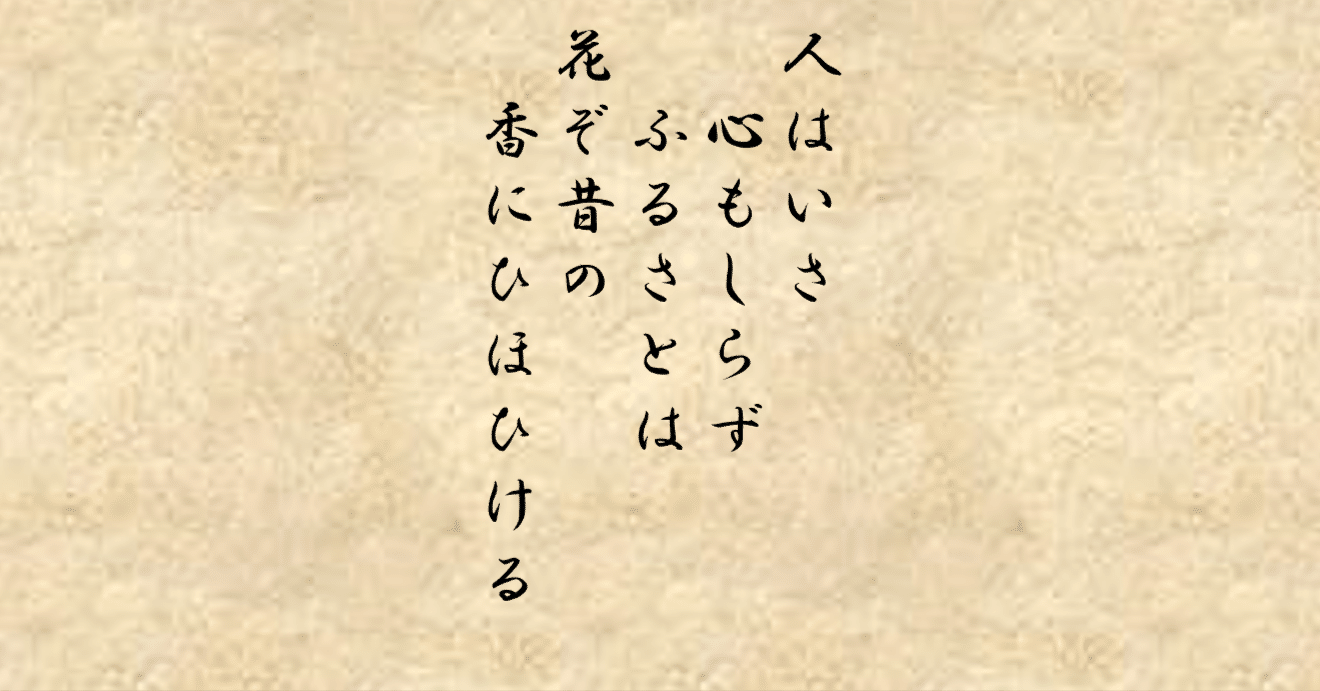 人はいさ
心もしらず
ふるさとは
花ぞ昔の
香にひほひける